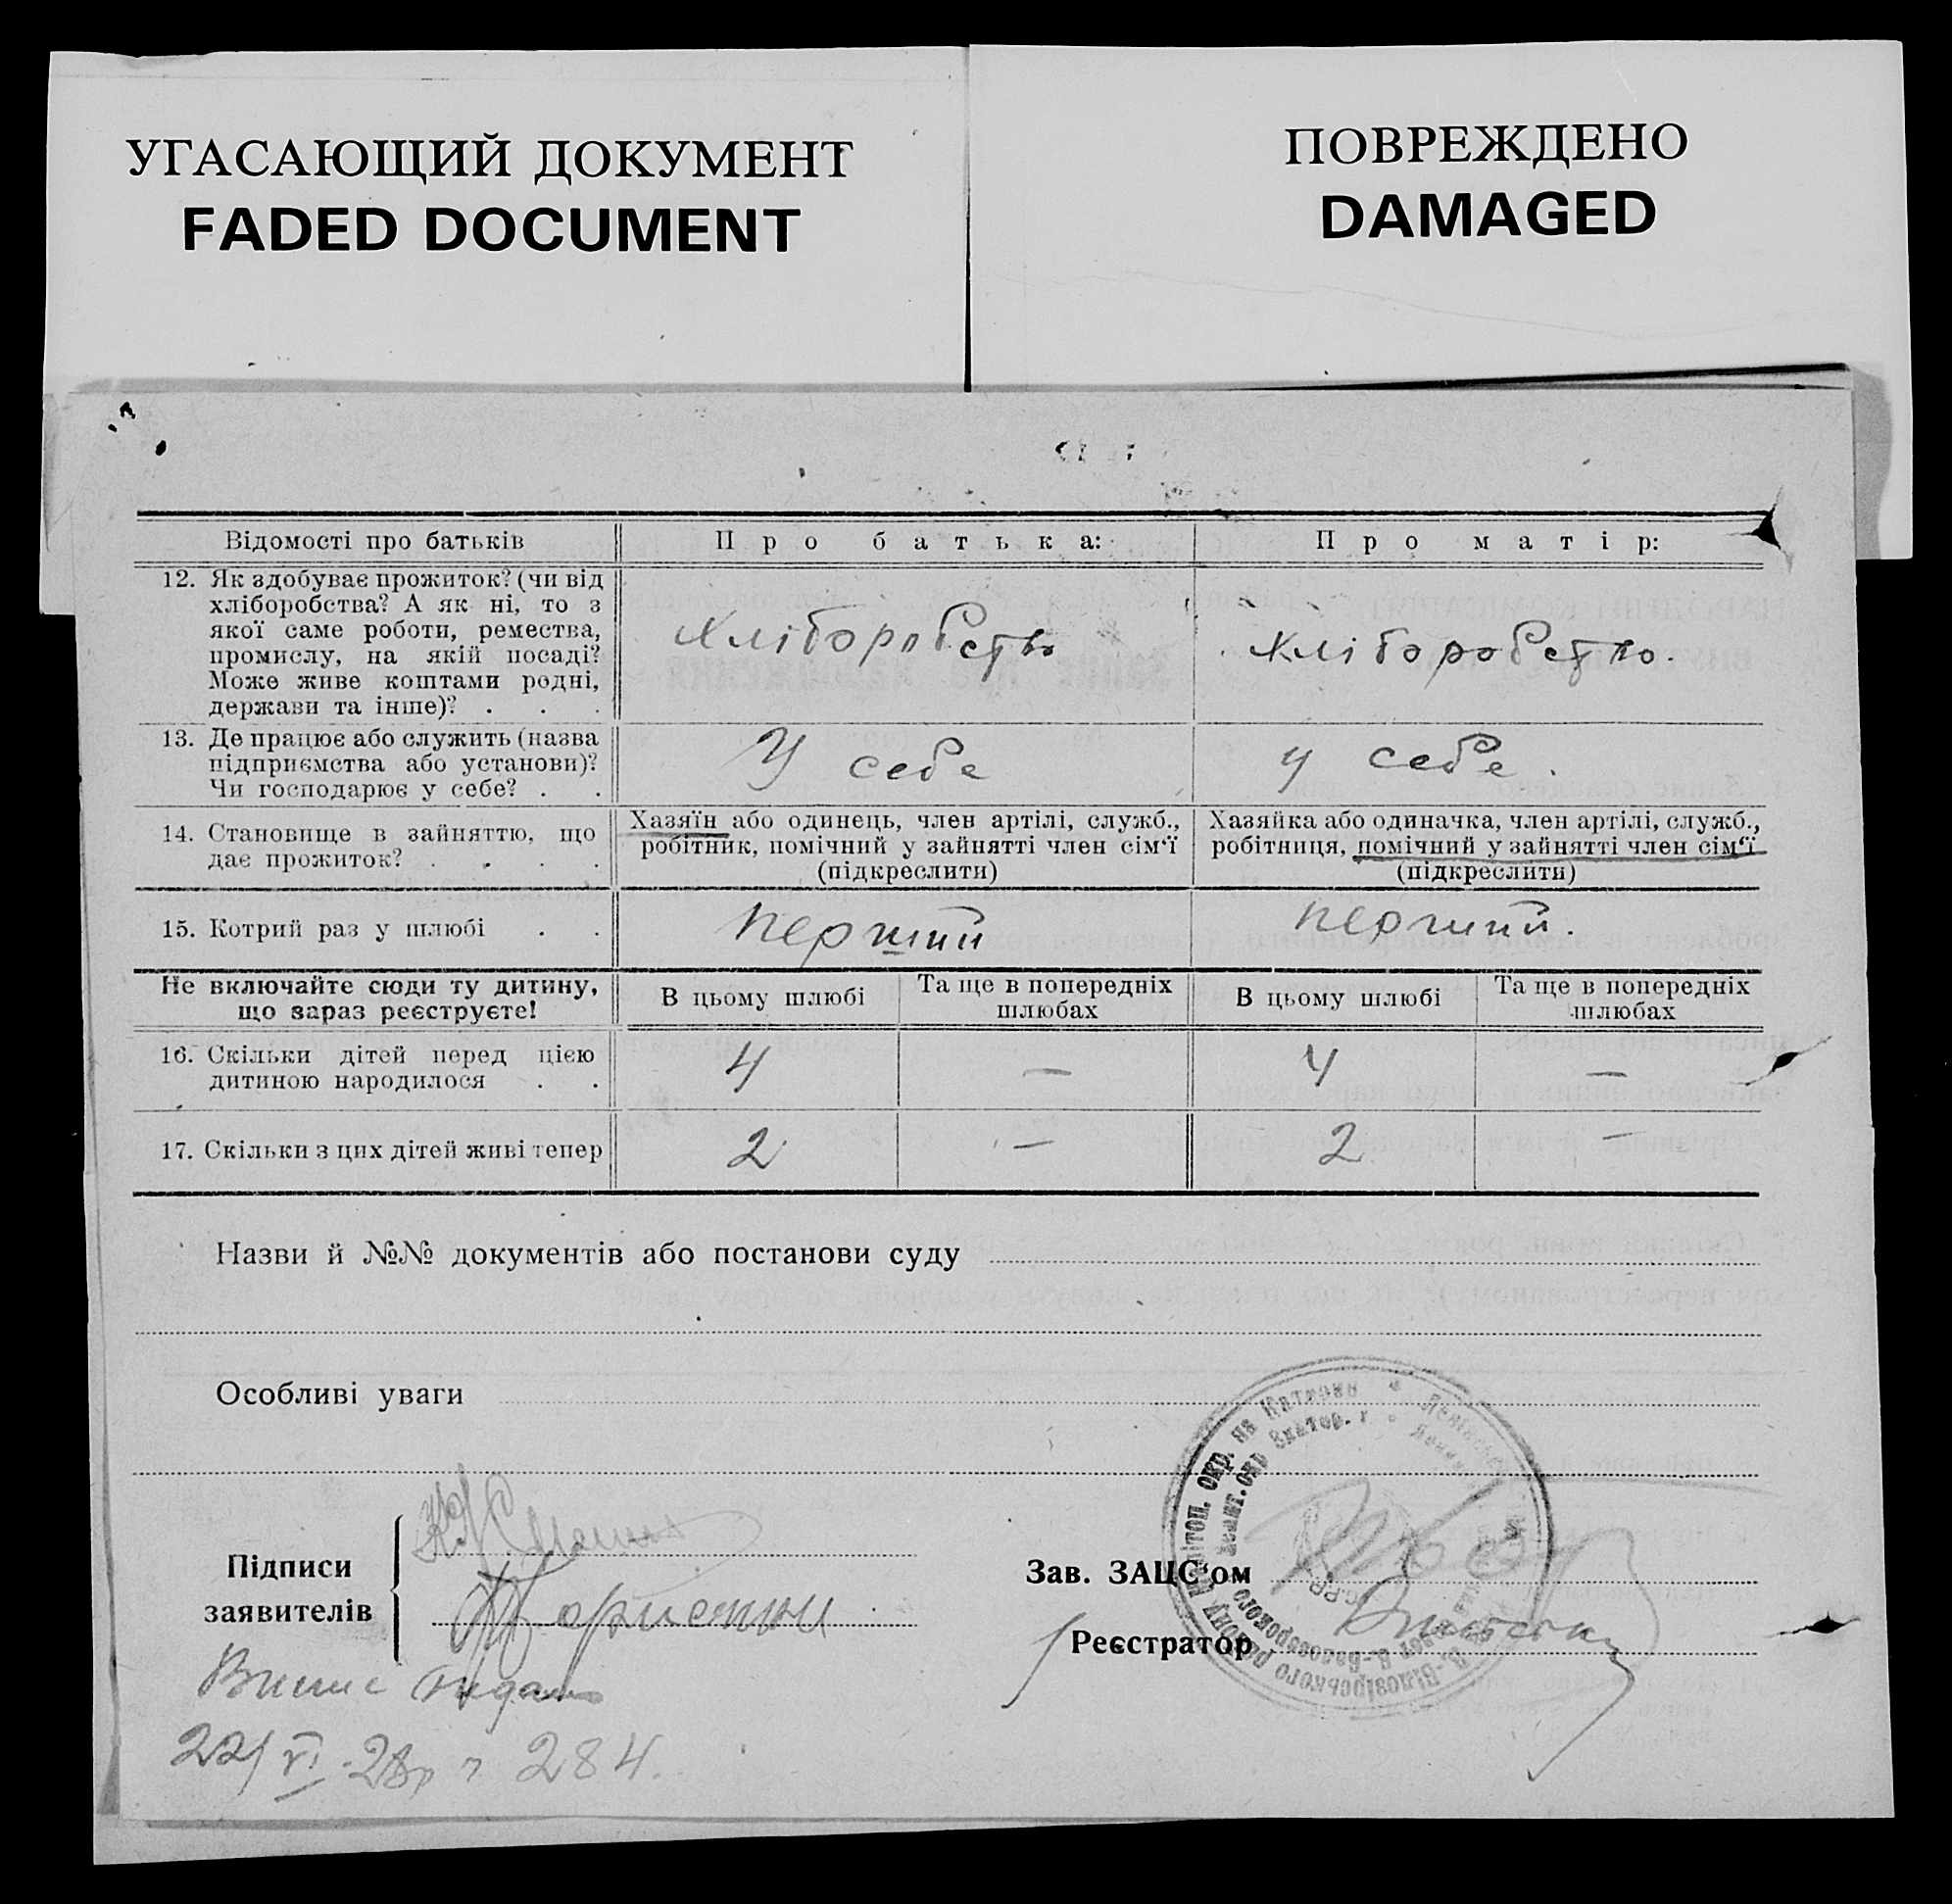 УГАСАЮЩИЙ ДОКУМЕНТ
FADED DOCUMENT
ПОВРЕЖДЕНО
DAMAGED
Відомості про батьків
Про батька:
Про матір:
12. Як здобуває прожиток? (чи від
хліборобства? А як ні, то з
якої саме роботи, ремества,
промислу, на якій посаді?
Може живе коштами родні,
держави та інше)? . . .
Хліборобство
Хліборобство.
13. Де працює або служить (назва
підприємства або установи)?
Чи господарює у себе? . .
У себе
у себе.
14. Становище в зайняттю, що
дає прожиток? . . . .
Хазяїн або одинець, член артілі, служб.,
робітник, помічний у зайнятті член сім'ї
(підкреслити)
Хазяйка або одиначка, член артілі, служб.,
робітниця, помічний у зайнятті член сім'ї
(підкреслити)
15. Котрий раз у шлюбі . .
перший
перший.
Не включайте сюди ту дитину,
що зараз реєструєте!
В цьому шлюбі
Та ще в попередніх
шлюбах
В цьому шлюбі
Та ще в попередніх
шлюбах
16. Скільки дітей перед цією
дитиною народилося . .
4
—
4
—
17. Скільки з цих дітей живі тепер
2
—
2
—
Назви й №№ документів або постанови суду
Особливі уваги
Підписи
заявителів
Зав. ЗАЦС'ом
Реєстратор
Випис видано
22/VI-28р 284.